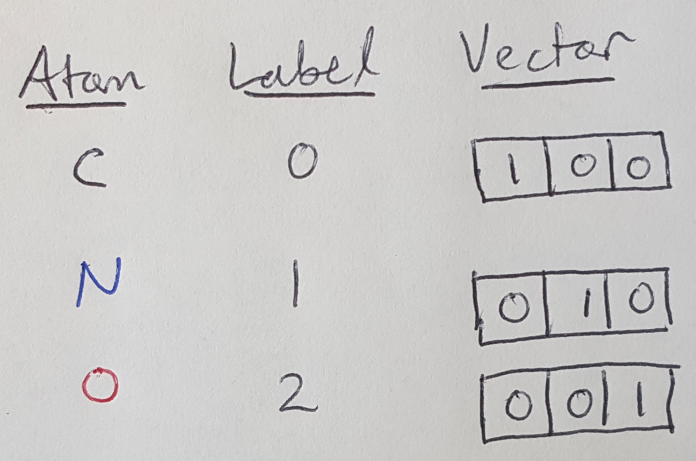 Atom Label Vector
C 0 1 0 0
N 1 0 1 0
O 2 0 0 1